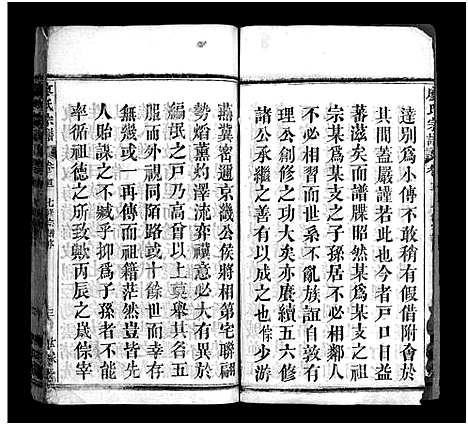 達別爲小傳不敢稍有假借附會於
其間蓋嚴謹若此也今者戶口日益
蕃滋矣而譜牒昭然某爲某之支某
宗某爲某支之子孫居不必相鄰人
不必相習而世系不亂族誼自敦有
理公創修之功大矣亦賡續五六修
諸公承繼之善有以成之也倧少游
燕冀密邇京畿公侯將相第宅聯翩
勢焰薰灼澤流弈禩意必大有異於
編氓之戶乃高曾以上莫舉其名五
服而外視同陌路或十餘世而幸存
無幾或一再傳而祖籍茫然豈皆先
人貽謀之不臧乎抑爲子孫者不能
率循祖德之所致歟丙辰之歲倧宰